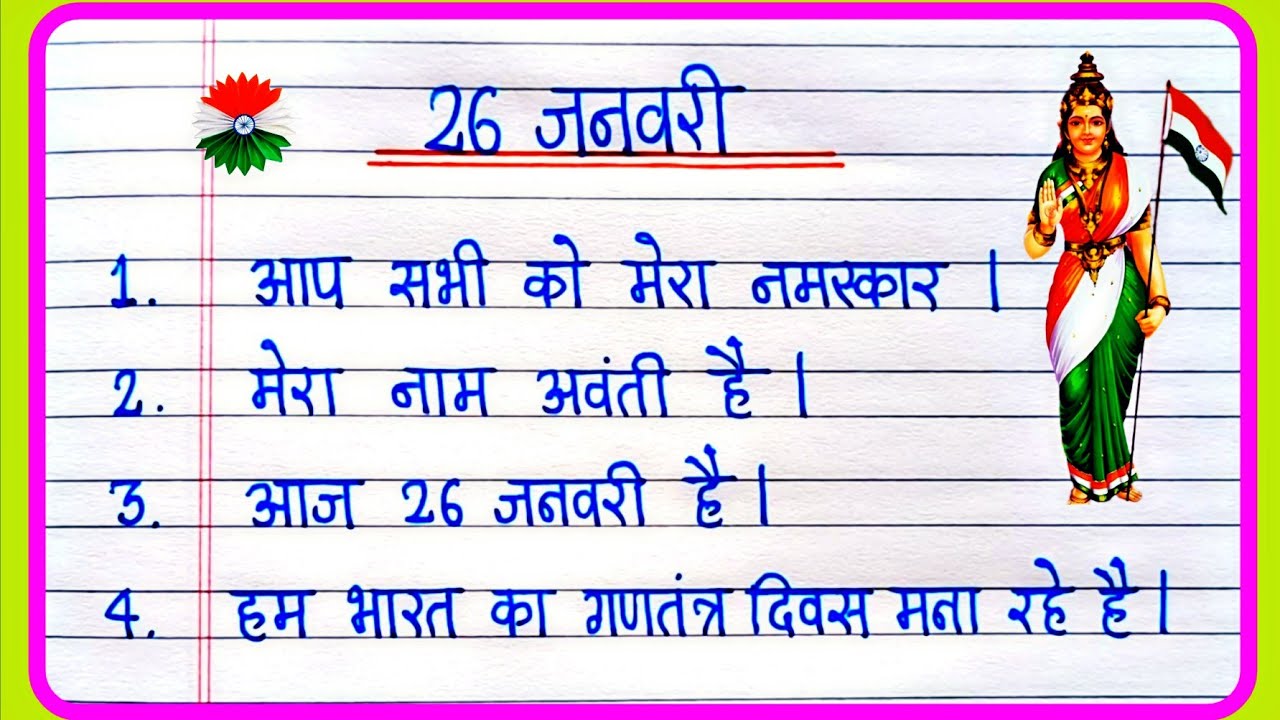 26 जनवरी
1. आप सभी को मेरा नमस्कार ।
2. मेरा नाम अवंती है ।
3. आज 26 जनवरी है ।
4. हम भारत का गणतंत्र दिवस मना रहे है ।